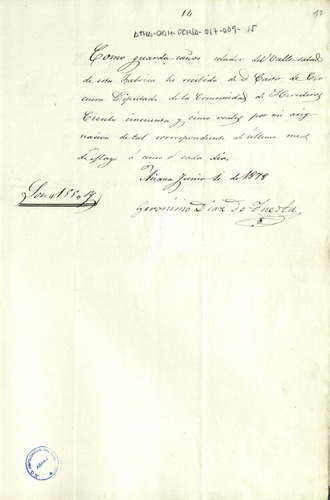 14
13
ATHA-DGH-FCHSA-017-009-15
Como guarda-caños celador del Valle-salado
de esta Fabrica he recibido de D. Castor de
Diputado de la Comunidad de Herederos
Ciento cincuenta y cinco reales por mi asig
nacion de tal correspondiente al último mes
de Mayo á cinco r. cada dia.
Añana Junio 1o de 1878
Son 155 r
Geronimo Diaz de Tuesta
AÑANA